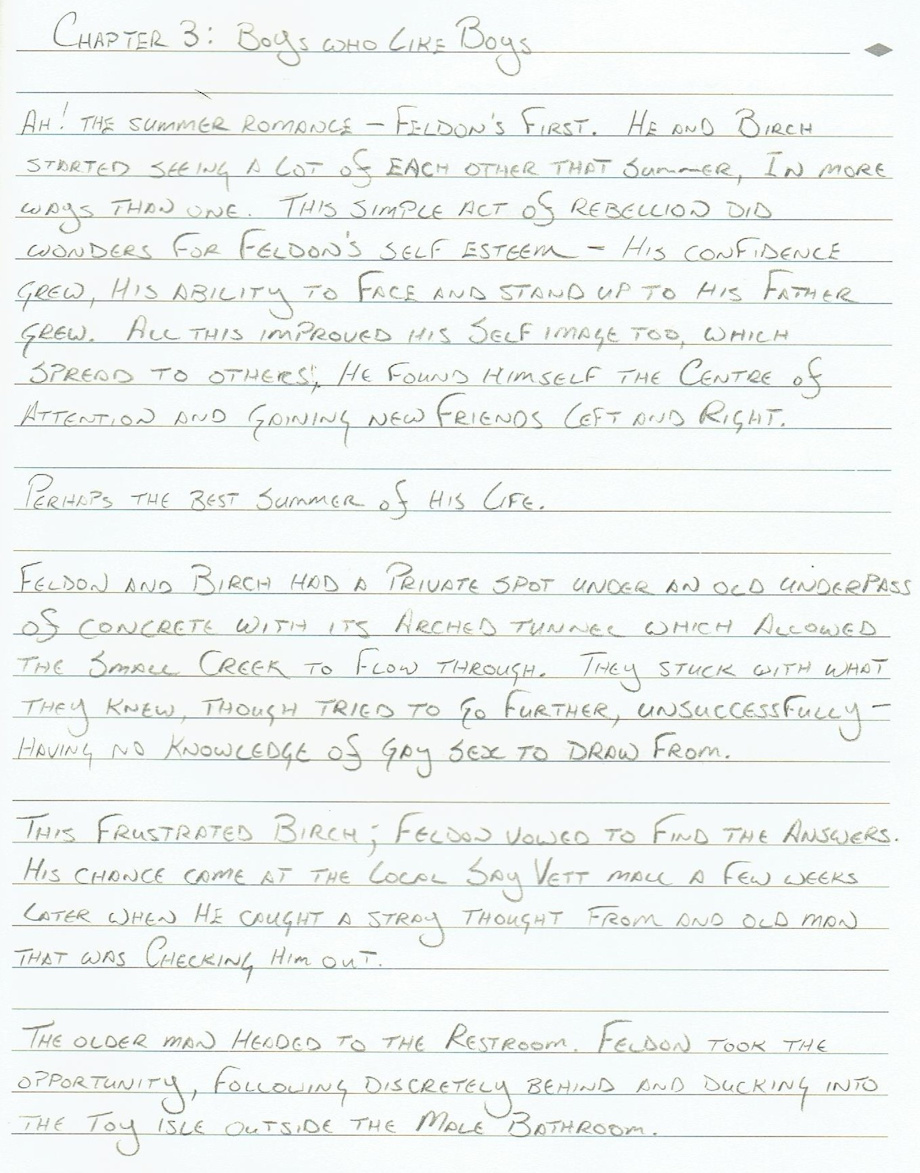 CHAPTER 3: BOYS WHO LIKE BOYS
AH! THE SUMMER ROMANCE – FELDON'S FIRST. HE AND BIRCH
STARTED SEEING A LOT OF EACH OTHER THAT SUMMER, IN MORE
WAYS THAN ONE. THIS SIMPLE ACT OF REBELLION DID
WONDERS FOR FELDON'S SELF ESTEEM – HIS CONFIDENCE
GREW, HIS ABILITY TO FACE AND STAND UP TO HIS FATHER
GREW. ALL THIS IMPROVED HIS SELF IMAGE TOO, WHICH
SPREAD TO OTHERS; HE FOUND HIMSELF THE CENTRE OF
ATTENTION AND GAINING NEW FRIENDS LEFT AND RIGHT.
PERHAPS THE BEST SUMMER OF HIS LIFE.
FELDON AND BIRCH HAD A PRIVATE SPOT UNDER AN OLD UNDERPASS
OF CONCRETE WITH ITS ARCHED TUNNEL WHICH ALLOWED
THE SMALL CREEK TO FLOW THROUGH. THEY STUCK WITH WHAT
THEY KNEW, THOUGH TRIED TO GO FURTHER, UNSUCCESSFULLY –
HAVING NO KNOWLEDGE OF GAY SEX TO DRAW FROM.
THIS FRUSTRATED BIRCH; FELDON VOWED TO FIND THE ANSWERS.
HIS CHANCE CAME AT THE LOCAL SAY VETT MALL A FEW WEEKS
LATER WHEN HE CAUGHT A STRAY THOUGHT FROM AND OLD MAN
THAT WAS CHECKING HIM OUT.
THE OLDER MAN HEADED TO THE RESTROOM. FELDON TOOK THE
OPPORTUNITY, FOLLOWING DISCRETELY BEHIND AND DUCKING INTO
THE TOY ISLE OUTSIDE THE MALE BATHROOM.